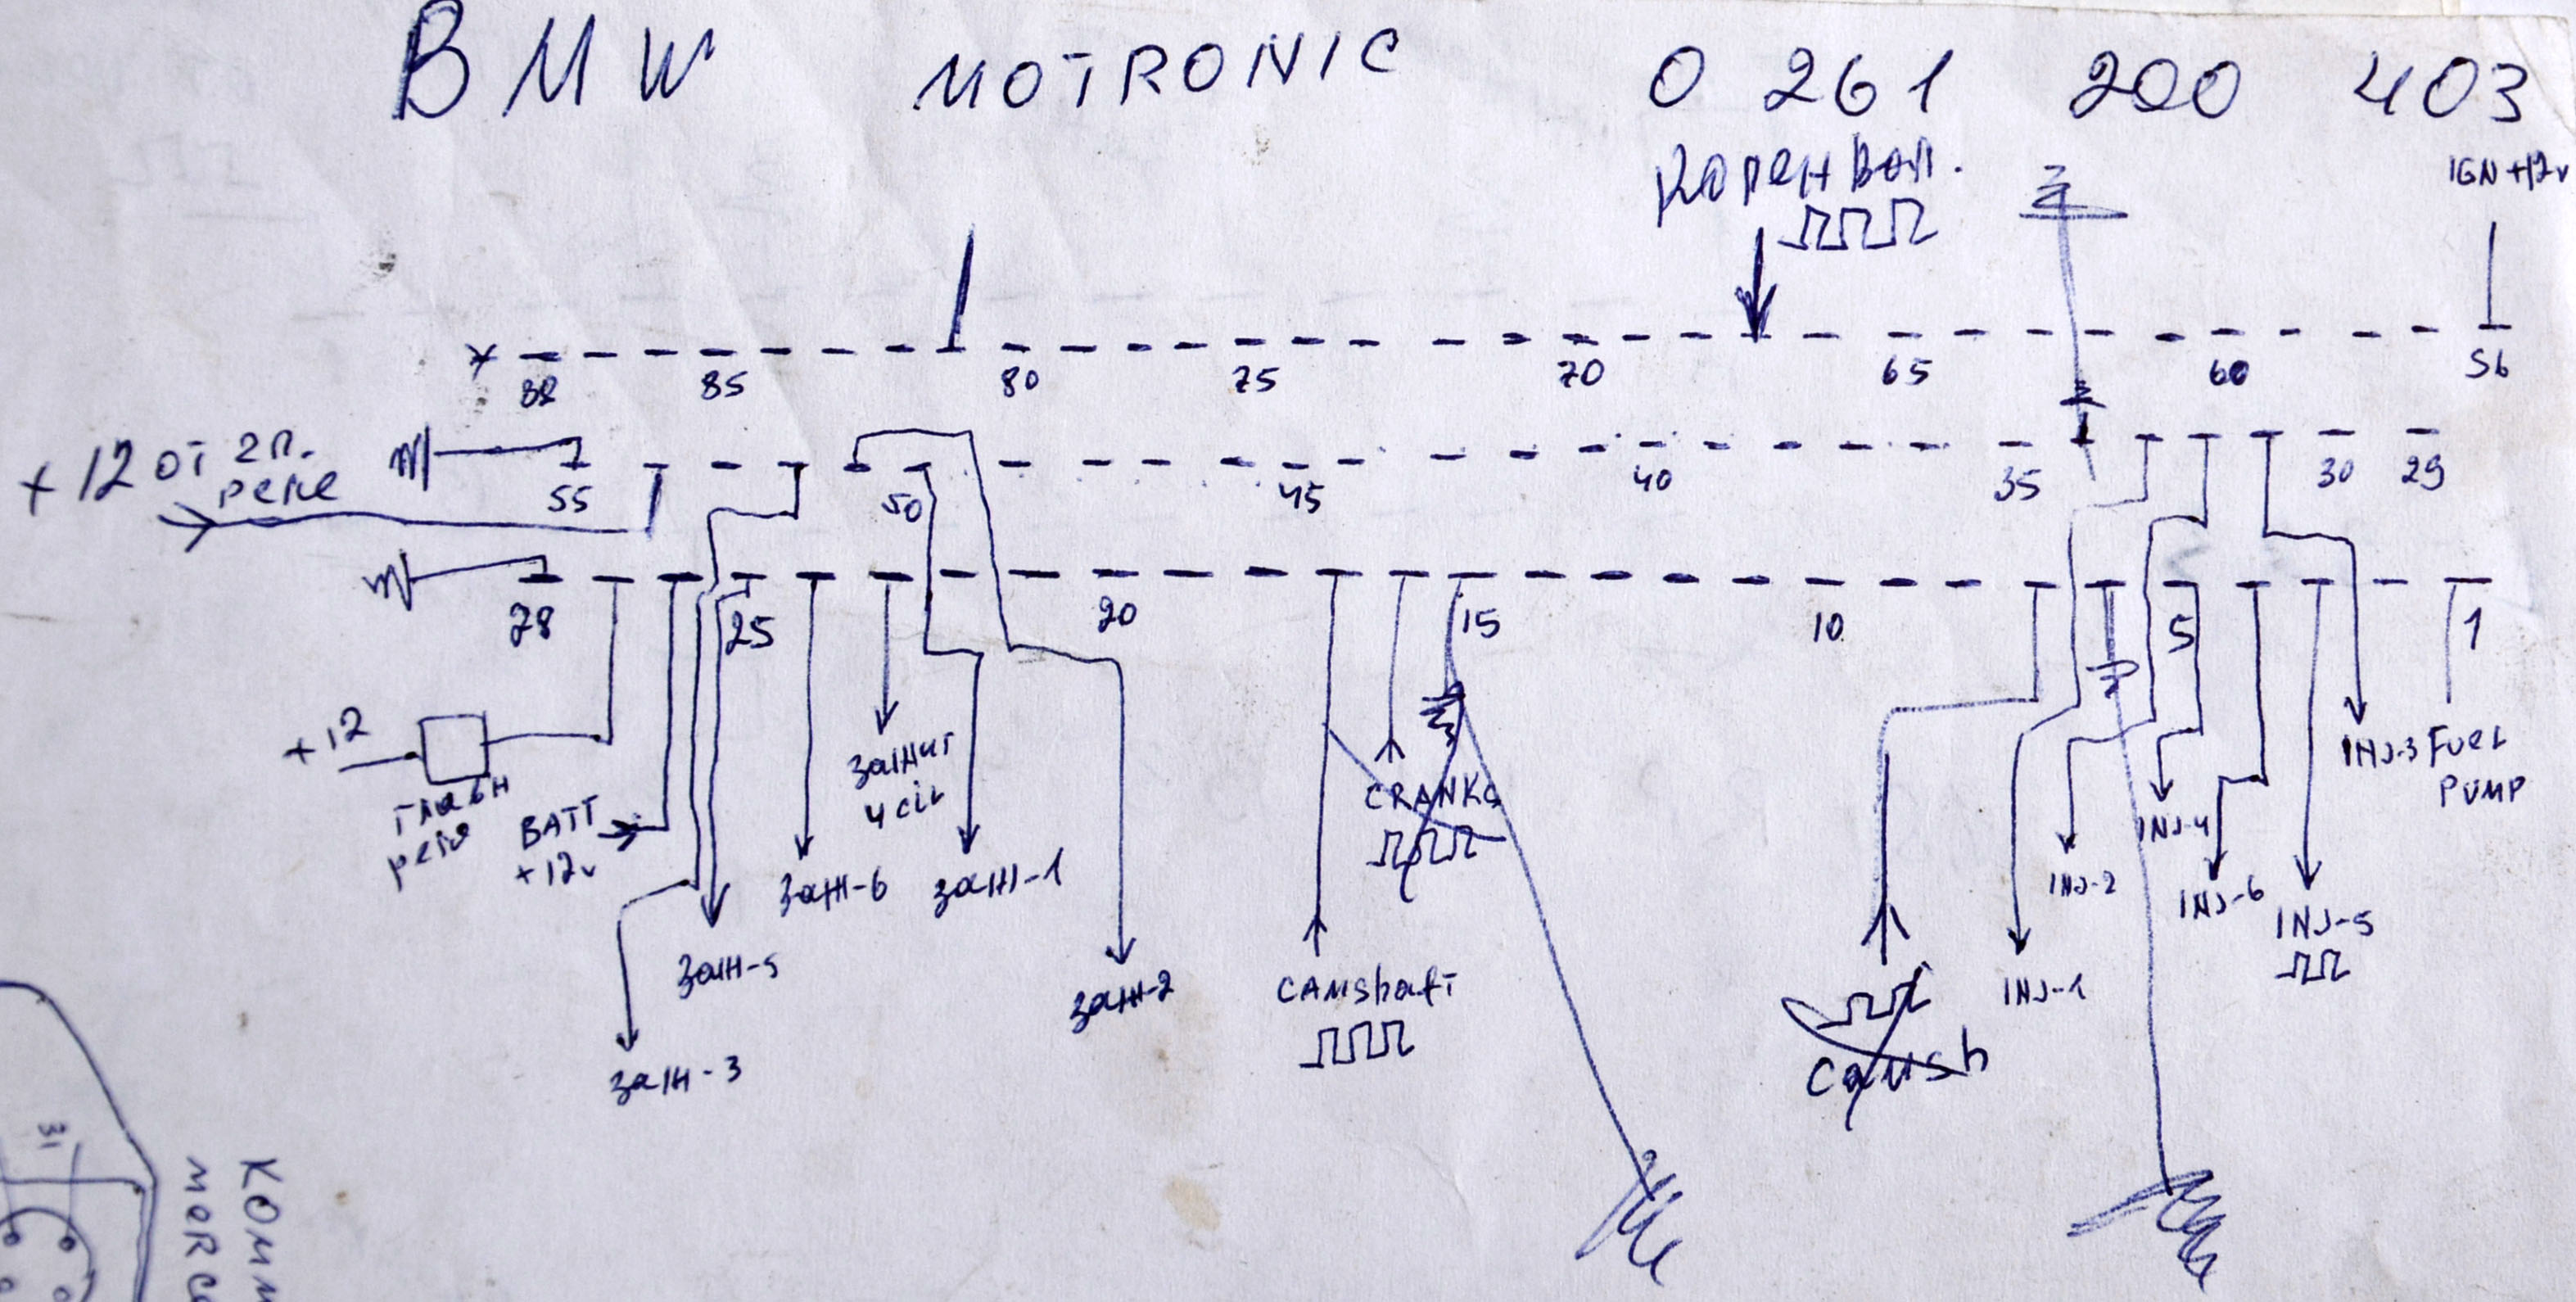 BMW MOTRONIC 0 261 200 403
IGN +12v
Коренвал.
88 85 80 75 70 65 60 56
+12 от гл.
реле
55 50 45 40 35 30 29
28 25 20 15 10 5 1
+12
главн
реле
BATT
+12v
зажиг
4 cil
заж-6
заж-1
заж-5
заж-2
заж-3
CRANK
CAMshaft
INJ-3
FUEL
PUMP
INJ-4
INJ-2
INJ-6
INJ-5
INJ-1
31